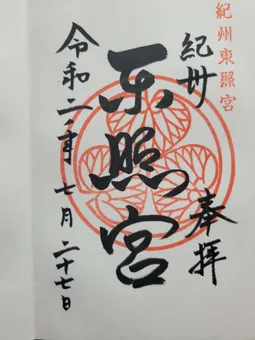 紀州東照宮
紀州
奉拝
東照宮
令和二年七月二十七日